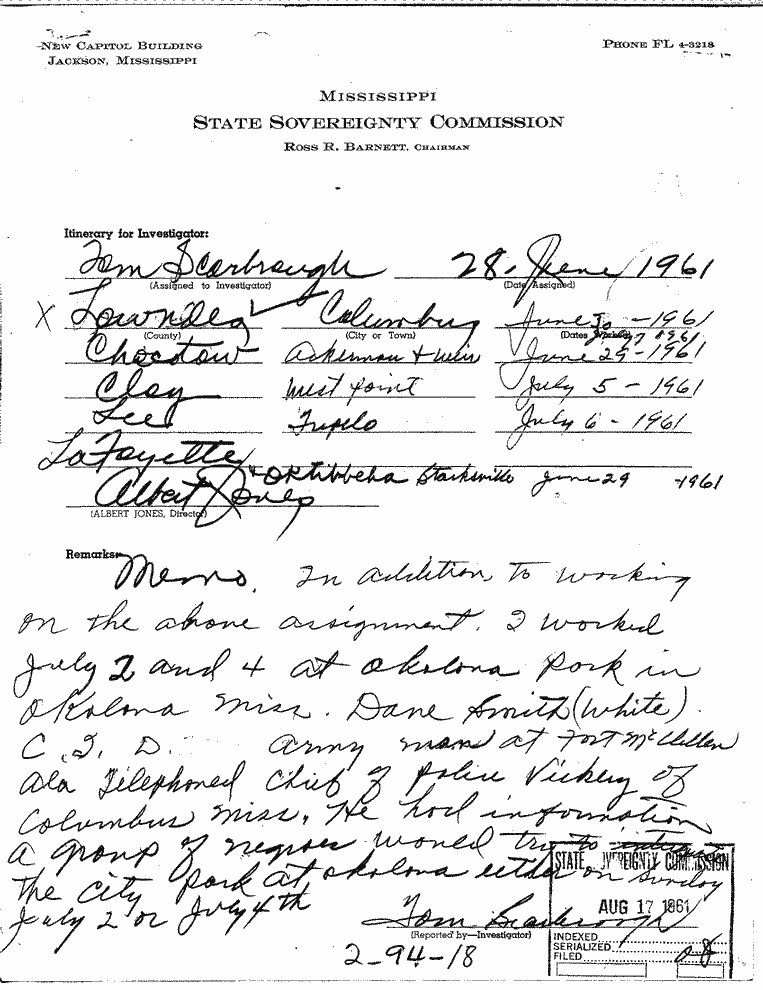 NEW CAPITOL BUILDING
JACKSON, MISSISSIPPI
PHONE FL 4-3218
MISSISSIPPI
STATE SOVEREIGNTY COMMISSION
ROSS R. BARNETT, CHAIRMAN
Itinerary for Investigator:
Tom Scarbrough 28 - June 1961
(Assigned to Investigator) (Date Assigned)
X Lowndes Columbus June 30 - 1961
(County) (City or Town) (Dates
Choctaw Ackerman + Weir June 29 - 1961
Clay West Point July 5 - 1961
Lee Tupelo July 6 - 1961
LaFayette
+ Oktibbeha Starksville June 29 - 1961
Albert Jones
(ALBERT JONES, Director)
Remarks:
Memo. In addition to working
on the above assignment. I worked
July 2 and 4 at Okolona Park in
Okolona Miss. Dane Smith (White).
C. I. D. Army man at Fort McClellan
Ala Telephoned Chief of Police Vickery of
Columbus Miss. He had information
a group of negroes would try to
the city park at Okolona either on Sunday
July 2 or July 4th
STATE SOVEREIGNTY COMMISSION
AUG 17 1961
Tom Scarbrough
(Reported by—Investigator)
INDEXED
SERIALIZED
FILED
2-94-18